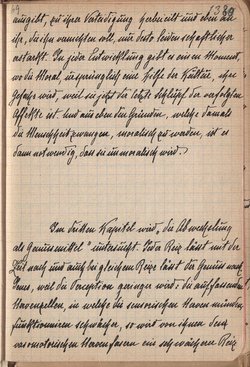 ausgeht, zu ihrer Verteidigung herbeieilt und eben
ihr, die ihn vernichten soll, nur desto leidenschaftlicher
erstarkt. In jeder Entwicklung gibt es einen Moment,
wo die Moral, ursprünglich eine Hilfe der Kultur, ihre
Gefahr wird, weil sie jetzt die letzte Schlucht der verfolgten
Affekte ist. Und aus eben den Gründen, welche damals
die Menschheit zwangen, moralisch zu werden, ist es
dann notwendig, dass sie immoralisch wird.
Im dritten Kapitel wird „die Abwechslung
als Genussmittel“ untersucht. Jeder Reiz lässt mit der
Zeit nach und auch bei gleichem Reize lässt der Genuss nach.
Jenes, weil die Perception geringer wird: die auffassenden
Nervenzellen, in welche die sensorischen Nerven münden,
funktionieren schwächer, so wird von ihnen den
vasomotorischen Nervenfasern ein schwächerer Reiz